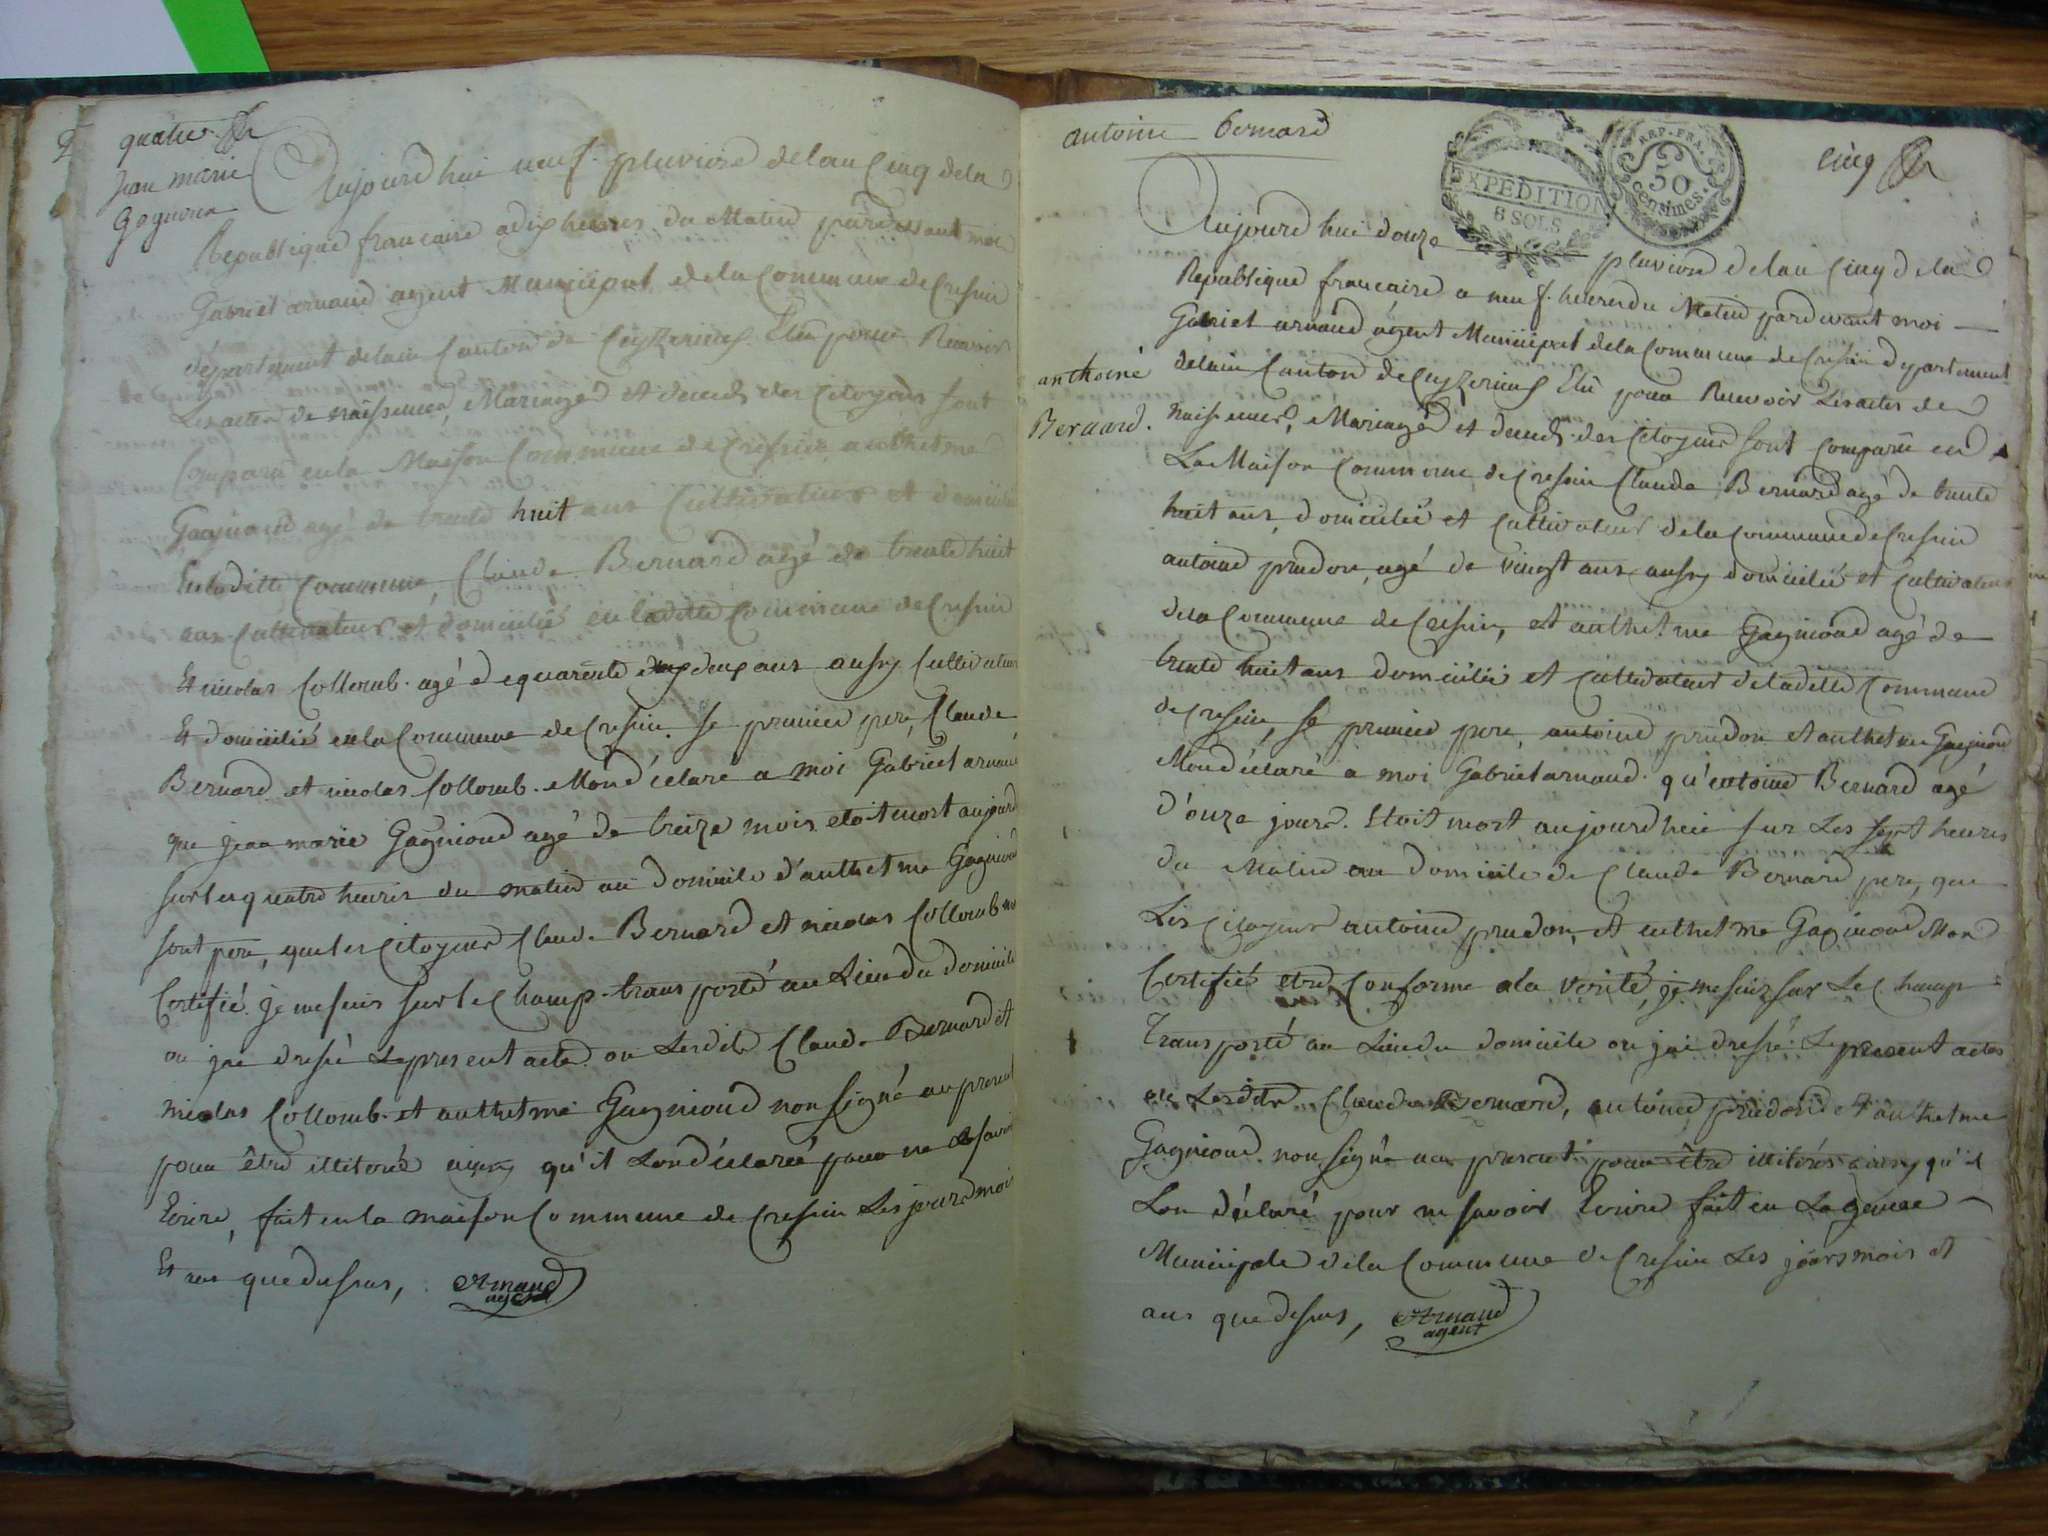 quatre
Jean marie
Gagnieux
Aujourd hui neuf pluviose de lan Cinq de la
Republique francaise a dix heures du Matin pardevant moi
Gabriel arnaud agent Municipal de la Commune de Cressin
département de lain Canton de Ceyzerieux Elu pour Recevoir
Les actes de naissence, Mariage et deces des Citoyens sont
Comparu en la Maison Commune de Cressin anthelme
Gagnioud agé de trente huit ans Cultivateur et domicilié
En laditte Commune, Claude Bernard agé de trente huit
ans Cultivateur et domicilié en laditte Commune de Cressin
Et nicolas Collomb agé de quarente deux ans aussy Cultivateur
Et domicilié en la Commune de Cressin. Le premier pere, Claude
Bernard et nicolas Collomb. Mon déclaré a moi Gabriel arnaud
que jean marie Gagnioud agé de treize mois etoit mort aujourd
sur les quatre heures du matin au domicile d'anthelme Gagnioud
sont pere, que les Citoyens Claude Bernard et nicolas Collomb mon
Certifié. je me suis sur le Champ transporté au Lieu du domicile
ou jai dressé Le present acte ou Lesdits Claude Bernard et
nicolas Collomb et anthelme Gagnioud non signé au present
pour être illiterés qu'il Lon déclaré pour ne savoir
Ecrire, fait en la maison Commune de Cressin Les jours mois
Et ans que dessus, Arnaud
agent
antoine Bernard
EXPEDITION
6 SOLS
REP. FRA.
50
centimes.
cinq
anthoine
Bernard.
Aujourd hui douze pluviose de lan Cinq de la
Republique francaise a neuf heures du Matin pardevant moi
Gabriel arnaud agent Municipal de la Commune de Cressin departement
de lain Canton de Ceyzerieux Elu pour Recevoir Les actes de
naissences, Mariage et deces des Citoyens sont Comparu en
La Maison Commune de Cressin Claude Bernard agé de trente
huit ans, domicilié et Cultivateur de la Commune de Cressin
antoine prudon, agé de vingt ans aussy domicilié et Cultivateur
de la Commune de Cressin, et anthelme Gagnioud agé de
trente huit ans domicilié et Cultivateur de laditte Commune
de Cressin, Le premier pere, antoine prudon et anthelme Gagnioud
Mon déclaré a moi Gabriel arnaud qu'antoine Bernard agé
d'onze jours. Etoit mort aujourd huie sur Les sept heures
du Matin au domicile de Claude Bernard pere, que
Les Citoyens antoine prudon, et anthelme Gagnioud Mon
Certifié etre Conforme a la verité, je me suis sur Le Champ
Transporté au Lieu du domicile ou jai dressé Le present acte
ou Lesdits Claude Bernard, antoine prudon et anthelme
Gagnioud non signé au present pour être illiterés ainsy qu'il
Lon déclaré pour ne savoir Ecrire fait en La
Municipale de la Commune de Cressin Les jours mois et
ans que dessus, Arnaud
agent